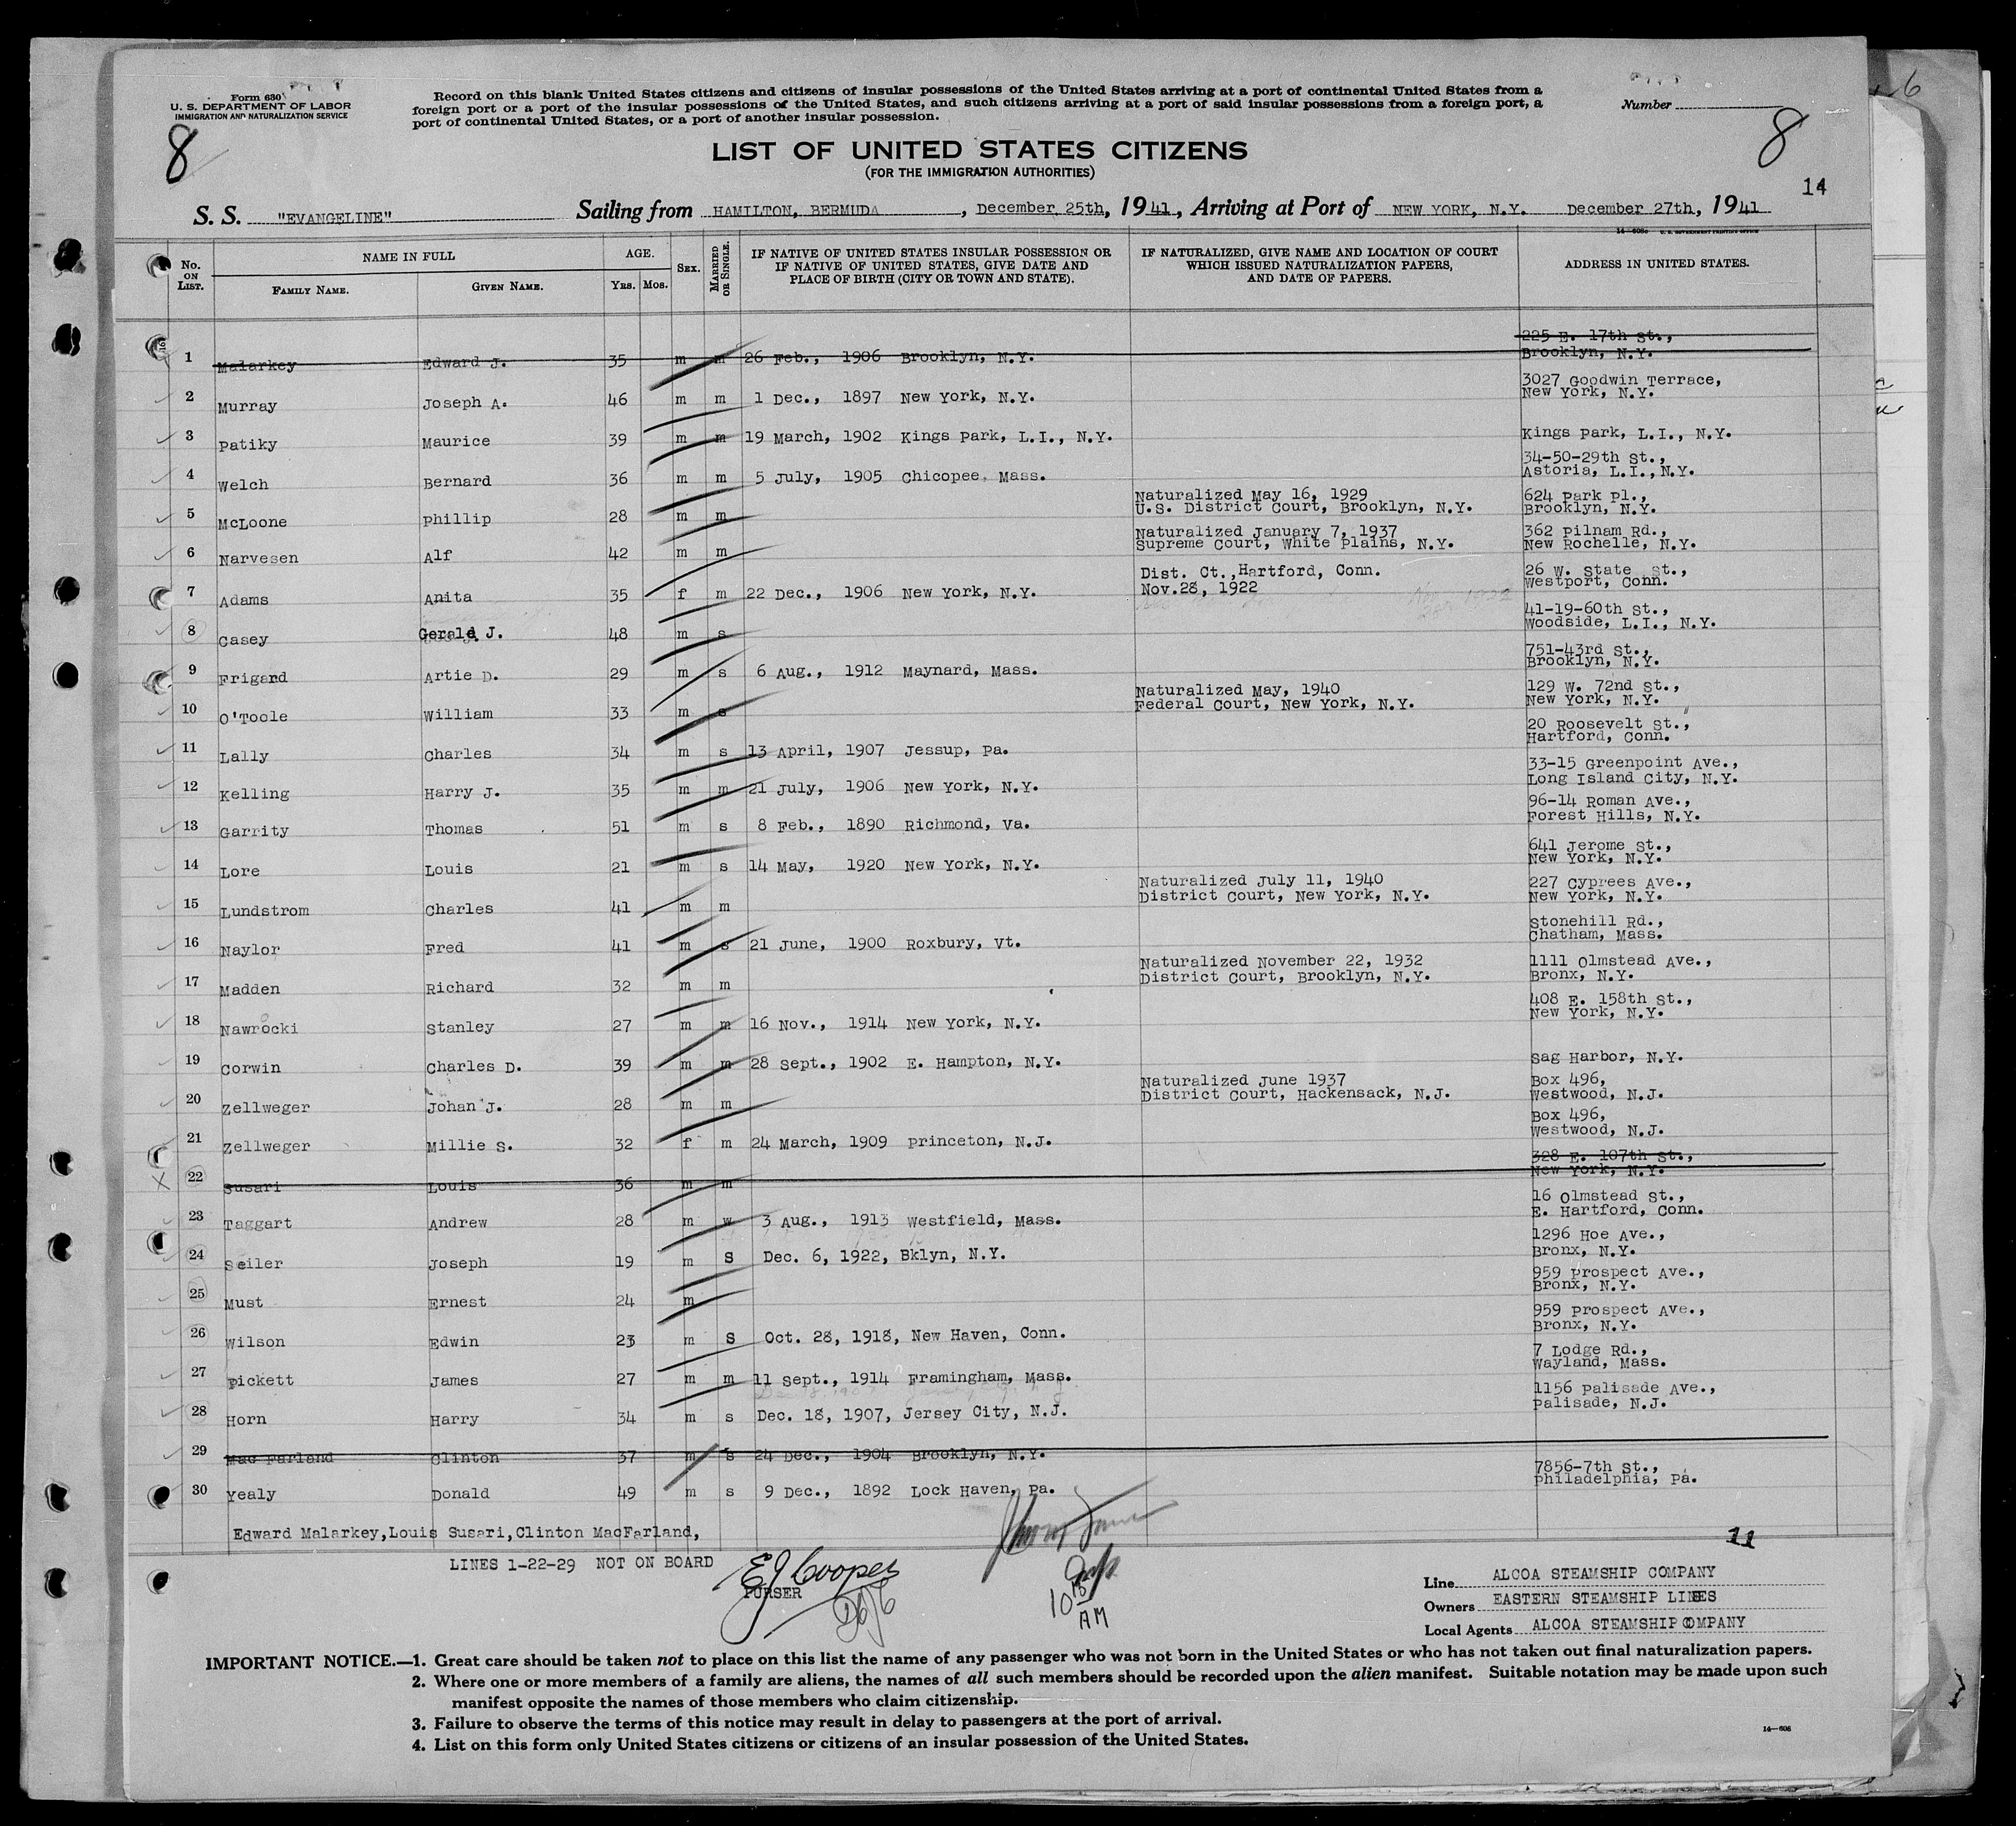 Form 630
U. S. DEPARTMENT OF LABOR
IMMIGRATION AND NATURALIZATION SERVICE
Record on this blank United States citizens and citizens of insular possessions of the United States arriving at a port of continental United States from a
foreign port or a port of the insular possessions of the United States, and such citizens arriving at a port of said insular possessions from a foreign port, a
port of continental United States, or a port of another insular possession.
Number
6
8
8
LIST OF UNITED STATES CITIZENS
(FOR THE IMMIGRATION AUTHORITIES)
14
S. S. "EVANGELINE" Sailing from HAMILTON, BERMUDA, December 25th, 1941, Arriving at Port of NEW YORK, N.Y. December 27th, 1941
No. ON LIST. NAME IN FULL FAMILY NAME. GIVEN NAME. AGE. YRS. MOS. SEX. MARRIED OR SINGLE. IF NATIVE OF UNITED STATES INSULAR POSSESSION OR IF NATIVE OF UNITED STATES, GIVE DATE AND PLACE OF BIRTH (CITY OR TOWN AND STATE). IF NATURALIZED, GIVE NAME AND LOCATION OF COURT WHICH ISSUED NATURALIZATION PAPERS, AND DATE OF PAPERS. ADDRESS IN UNITED STATES.
1 Malarkey Edward J. 35 m m 26 Feb., 1906 Brooklyn, N.Y. 225 E. 17th St., Brooklyn, N.Y.
2 Murray Joseph A. 46 m m 1 Dec., 1897 New York, N.Y. 3027 Goodwin Terrace, New York, N.Y.
3 Patiky Maurice 39 m m 19 March, 1902 Kings Park, L.I., N.Y. Kings Park, L.I., N.Y.
4 Welch Bernard 36 m m 5 July, 1905 Chicopee, Mass. 34-50-29th St., Astoria, L.I.,N.Y.
5 McLoone Phillip 28 m m Naturalized May 16, 1929 U.S. District Court, Brooklyn, N.Y. 624 Park Pl., Brooklyn, N.Y.
6 Narvesen Alf 42 m m Naturalized January 7, 1937 Supreme Court, White Plains, N.Y. 362 Pilnam Rd., New Rochelle, N.Y.
7 Adams Anita 35 f m 22 Dec., 1906 New York, N.Y. Dist. Ct.,Hartford, Conn. Nov.28, 1922 26 W. State St., Westport, Conn.
8 Casey Gerald J. 48 m s 41-19-60th St., Woodside, L.I., N.Y.
9 Frigard Artie D. 29 m s 6 Aug., 1912 Maynard, Mass. 751-43rd St., Brooklyn, N.Y.
10 O'Toole William 33 m s Naturalized May, 1940 Federal Court, New York, N.Y. 129 W. 72nd St., New York, N.Y.
11 Lally Charles 34 m s 13 April, 1907 Jessup, Pa. 20 Roosevelt St., Hartford, Conn.
12 Kelling Harry J. 35 m m 21 July, 1906 New York, N.Y. 33-15 Greenpoint Ave., Long Island City, N.Y.
13 Garrity Thomas 51 m s 8 Feb., 1890 Richmond, Va. 96-14 Roman Ave., Forest Hills, N.Y.
14 Lore Louis 21 m s 14 May, 1920 New York, N.Y. 641 Jerome St., New York, N.Y.
15 Lundstrom Charles 41 m m Naturalized July 11, 1940 District Court, New York, N.Y. 227 Cyprees Ave., New York, N.Y.
16 Naylor Fred 41 m s 21 June, 1900 Roxbury, Vt. Stonehill Rd., Chatham, Mass.
17 Madden Richard 32 m m Naturalized November 22, 1932 District Court, Brooklyn, N.Y. 1111 Olmstead Ave., Bronx, N.Y.
18 Nawrocki Stanley 27 m m 16 Nov., 1914 New York, N.Y. 408 E. 158th St., New York, N.Y.
19 Corwin Charles D. 39 m m 28 Sept., 1902 E. Hampton, N.Y. Sag Harbor, N.Y.
20 Zellweger Johan J. 28 m m Naturalized June 1937 District Court, Hackensack, N.J. Box 496, Westwood, N.J.
21 Zellweger Millie S. 32 f m 24 March, 1909 Princeton, N.J. Box 496, Westwood, N.J.
22 Susari Louis 36 m m 328 E. 107th St., New York, N.Y.
23 Taggart Andrew 28 m w 3 Aug., 1913 Westfield, Mass. 16 Olmstead St., E. Hartford, Conn.
24 Seiler Joseph 19 m S Dec. 6, 1922, Bklyn, N.Y. 1296 Hoe Ave., Bronx, N.Y.
25 Must Ernest 24 m 959 Prospect Ave., Bronx, N.Y.
26 Wilson Edwin 23 m S Oct. 28, 1918, New Haven, Conn. 959 Prospect Ave., Bronx, N.Y.
27 Pickett James 27 m m 11 Sept., 1914 Framingham, Mass. 7 Lodge Rd., Wayland, Mass.
28 Horn Harry 34 m s Dec. 18, 1907, Jersey City, N.J. 1156 Palisade Ave., Palisade, N.J.
29 Mac Farland Clinton 37 m s 24 Dec., 1904 Brooklyn, N.Y.
30 Yealy Donald 49 m s 9 Dec., 1892 Lock Haven, Pa. 7856-7th St., Philadelphia, Pa.
Edward Malarkey,Louis Susari,Clinton MacFarland,
11
LINES 1-22-29 NOT ON BOARD
EJ Cooper
PURSER
10 15 AM
Line ALCOA STEAMSHIP COMPANY
Owners EASTERN STEAMSHIP LINES
Local Agents ALCOA STEAMSHIP COMPANY
IMPORTANT NOTICE.—1. Great care should be taken not to place on this list the name of any passenger who was not born in the United States or who has not taken out final naturalization papers.
2. Where one or more members of a family are aliens, the names of all such members should be recorded upon the alien manifest. Suitable notation may be made upon such
manifest opposite the names of those members who claim citizenship.
3. Failure to observe the terms of this notice may result in delay to passengers at the port of arrival.
4. List on this form only United States citizens or citizens of an insular possession of the United States.
14—608